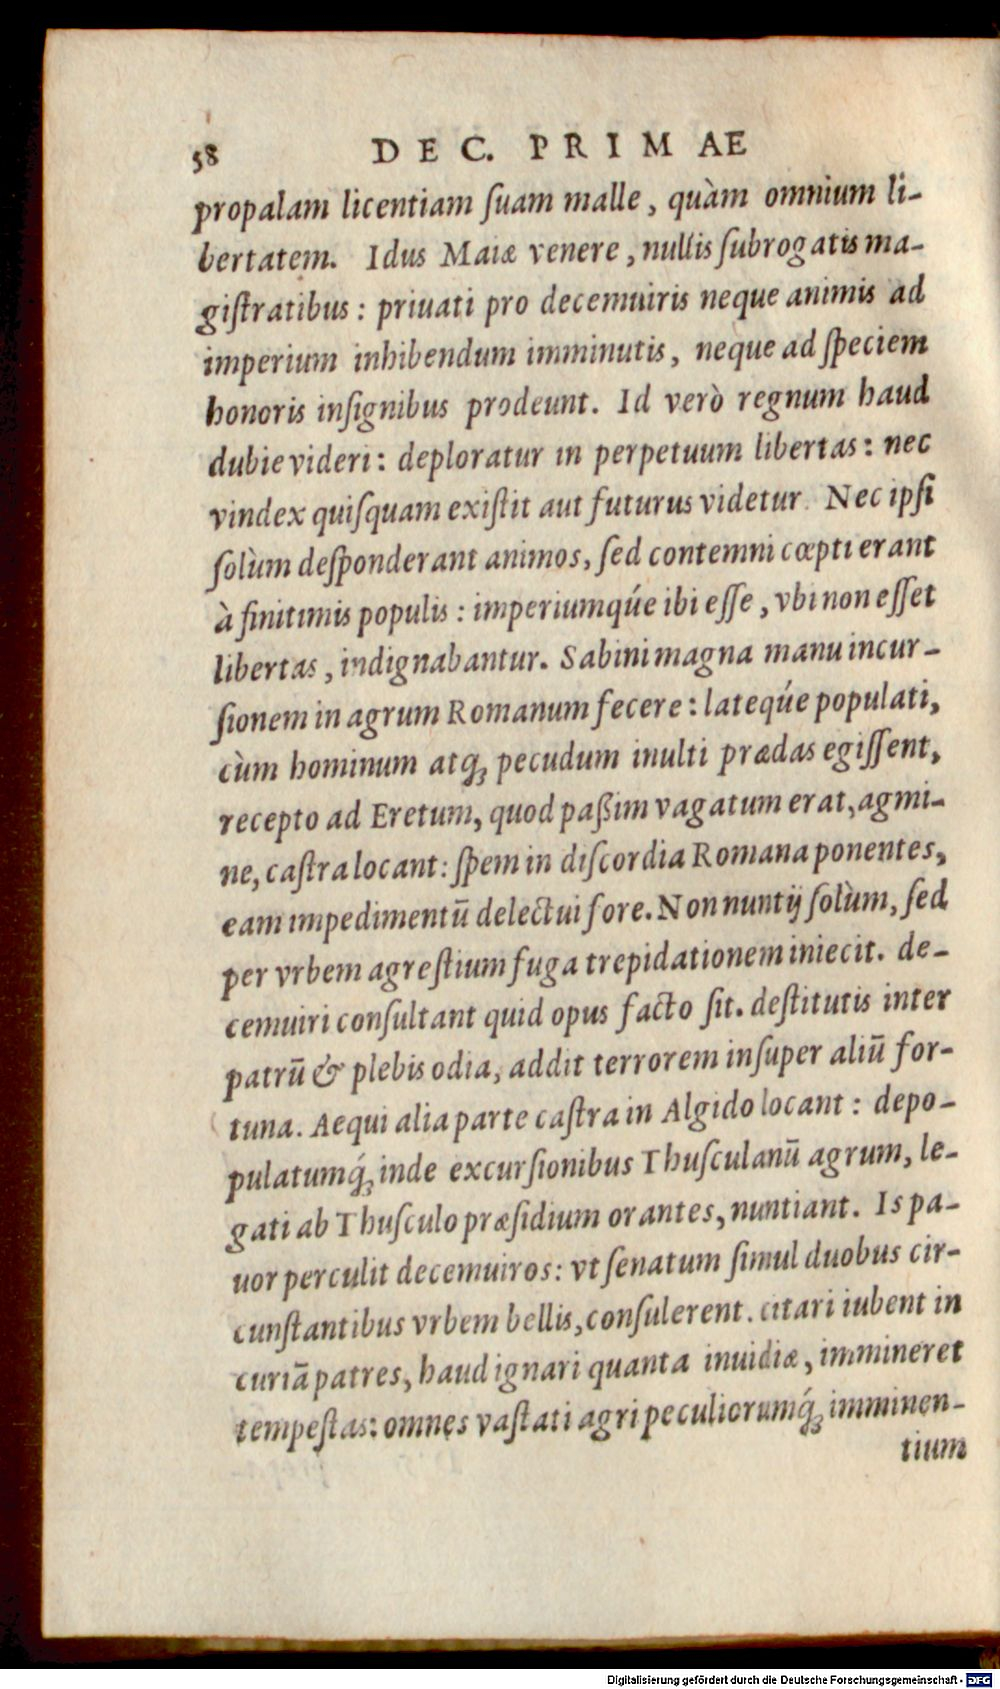 58 DEC. PRIMAE
propalam licentiam ſuam malle, quàm omnium li-
bertatem. Idus Maiæ venere, nullis ſubrogatis ma-
giſtratibus: priuati pro decemuiris neque animis ad
imperium inhibendum imminutis, neque ad ſpeciem
honoris inſignibus prodeunt. Id verò regnum haud
dubie videri: deploratur in perpetuum libertas: nec
vindex quiſquam exiſtit aut futurus videtur. Nec ipſi
ſolùm deſponderant animos, ſed contemni cœpti erant
à finitimis populis: imperiumqúe ibi eſſe, vbi non eſſet
libertas, indignabantur. Sabini magna manu incur-
ſionem in agrum Romanum fecere: lateqúe populati,
cùm hominum atq; pecudum inulti prædas egiſſent,
recepto ad Eretum, quod paßim vagatum erat, agmi-
ne, caſtra locant: ſpem in diſcordia Romana ponentes,
eam impedimentū delectui fore. Non nuntij ſolùm, ſed
per vrbem agreſtium fuga trepidationem iniecit. de-
cemuiri conſultant quid opus facto ſit. deſtitutis inter
patrū & plebis odia, addit terrorem inſuper aliū for-
tuna. Aequi alia parte caſtra in Algido locant: depo-
pulatumq́; inde excurſionibus Thuſculanū agrum, le-
gati ab Thuſculo præſidium orantes, nuntiant. Is pa-
uor perculit decemuiros: vt ſenatum ſimul duobus cir-
cunſtantibus vrbem bellis, conſulerent. citari iubent in
curiā patres, haud ignari quanta inuidiæ, immineret
tempeſtas: omnes vaſtati agri peculiorumq́; imminen-
tium
Digitalisierung gefördert durch die Deutsche Forschungsgemeinschaft - DFG